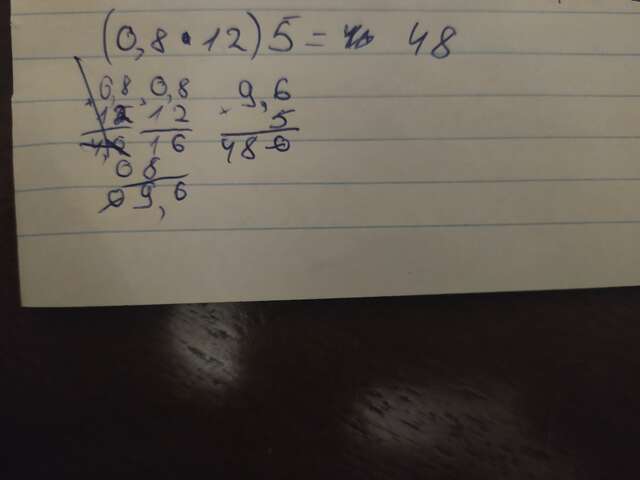 (0,8 · 12) 5 = 48
0,8 0,8 9,6
· 12 · 12 · 5
16 16 480
08
09,6